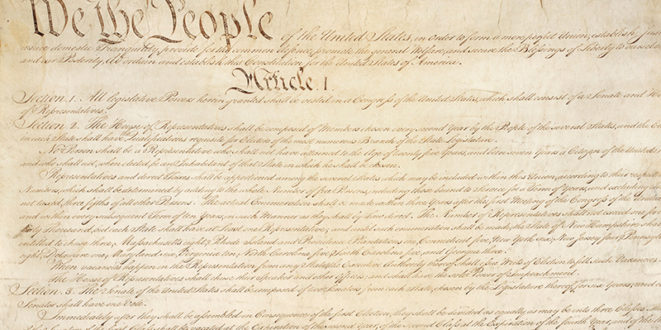 We the People of the United States, in Order to form a more perfect Union, establish
insure domestic Tranquility, provide for the common defence, promote the general Welfare, and secure the Blessings of Liberty to
and our Posterity, do ordain and establish this Constitution for the United States of America.
Article. I.
Section. 1. All legislative Powers herein granted shall be vested in a Congress of the United States, which shall consist of a Senate and
of Representatives.
Section. 2. The House of Representatives shall be composed of Members chosen every second Year by the People of the several States, and the
in each State shall have the Qualifications requisite for Electors of the most numerous Branch of the State Legislature.
No Person shall be a Representative who shall not have attained to the Age of twenty five Years, and been seven Years a Citizen of the United
and who shall not, when elected, be an Inhabitant of that State in which he shall be chosen.
Representatives and direct Taxes shall be apportioned among the several States which may be included within this Union, according to their respective
Numbers, which shall be determined by adding to the whole Number of free Persons, including those bound to Service for a Term of Years, and excluding
not taxed, three fifths of all other Persons. The actual Enumeration shall be made within three Years after the first Meeting of the Congress of the United
and within every subsequent Term of ten Years, in such Manner as they shall by Law direct. The Number of Representatives shall not exceed one for
thirty Thousand, but each State shall have at Least one Representative; and until such enumeration shall be made, the State of New Hampshire shall
entitled to chuse three, Massachusetts eight, Rhode Island and Providence Plantations one, Connecticut five, New York six, New Jersey four, Pennsylvania
eight, Delaware one, Maryland six, Virginia ten, North Carolina five, South Carolina five, and Georgia three.
When vacancies happen in the Representation from any State, the Executive Authority thereof shall issue Writs of Election to fill such Vacancies.
The House of Representatives shall chuse their Speaker and other Officers; and shall have the sole Power of Impeachment.
Section. 3. The Senate of the United States shall be composed of two Senators from each State, chosen by the Legislature thereof, for six Years; and
Senator shall have one Vote.
Immediately after they shall be assembled in Consequence of the first Election, they shall be divided as equally as may be into three Classes.